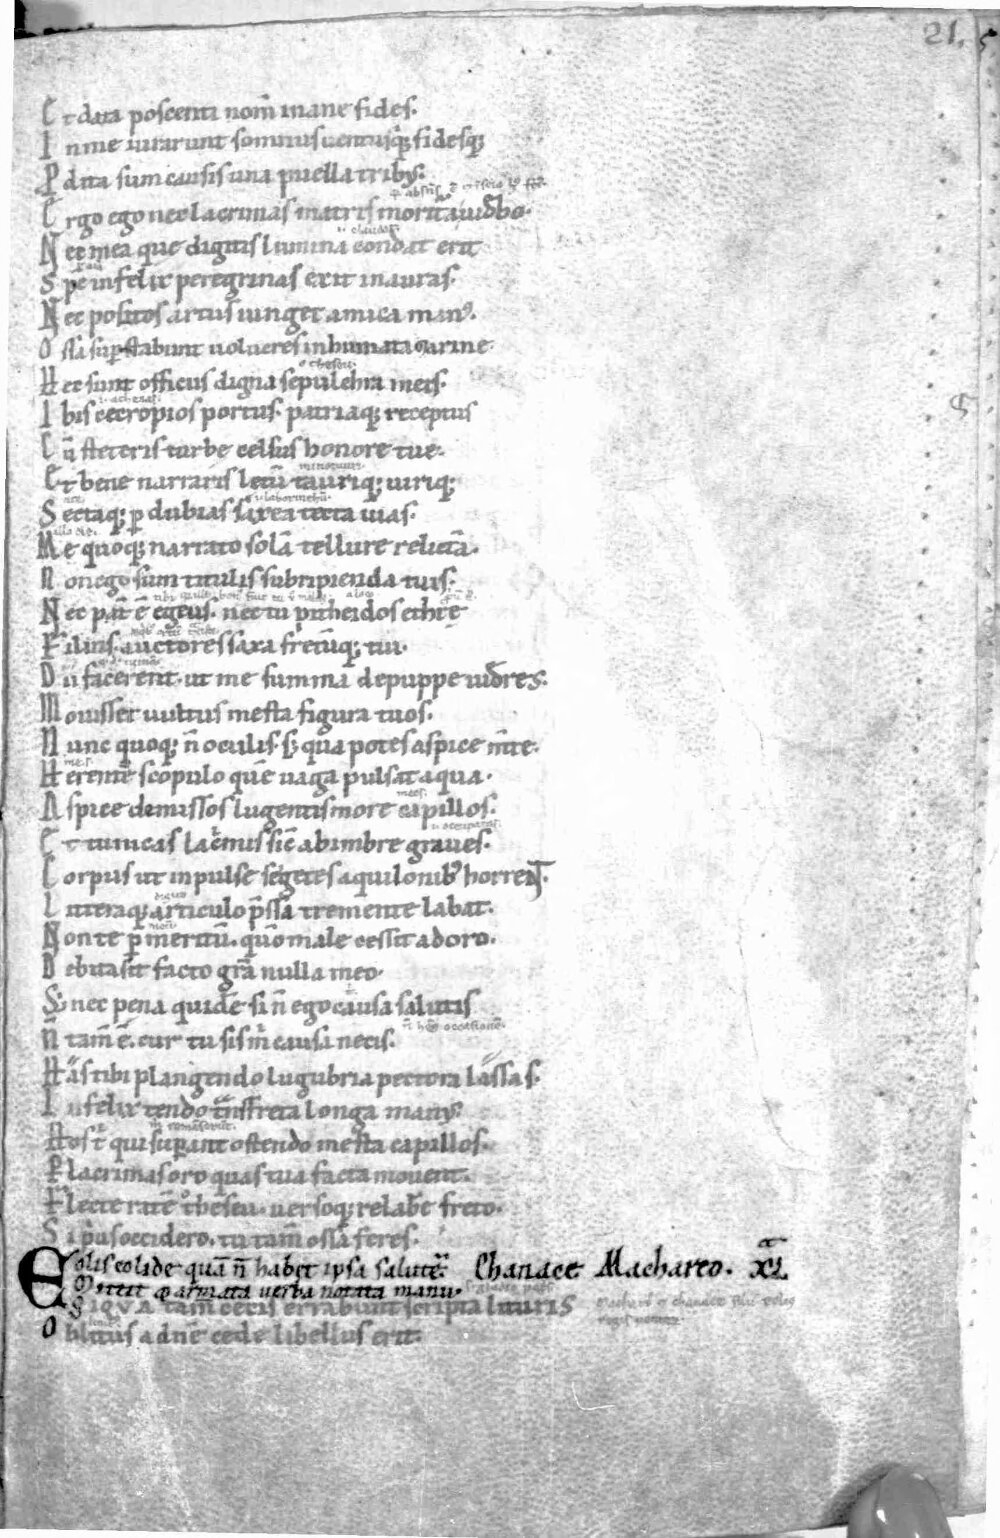 21.
Et data poscenti nom̄ inane fides.
In me iurarunt somnus uentusq; fidesq;
Pdita sum causis una puella tribus.
Ergo ego nec lacrimas matris moritā uidebo.
Nec mea que digitis lumina condat erit
Spc infelix peregrinas exit in auras.
Nec positos artus iunget amica man⁹.
Ossa sup̄stabunt uolucres inhumata marine.
Hec sunt officiis digna sepulchra meis.
Ibis cecropios portus. patriaq; receptus
Cū steteris turbe celsus honore tue.
Et bene narraris letū tauriq; uiriq;
Sectaq; p dubias saxea tecta uias.
Me quoq; narrato solā tellure relictā.
Non ego sum titulis subripienda tuis.
Nec pat̄ ē egeus. nec tu pitheidos ethrē
Filius. auctores saxa fretūq; tui.
Dii facerent. ut me summa de puppe uid̄res.
Mouisset uultus mesta figura tuos.
Nunc quoq; n̄ oculis. s; qua potes aspice m̄te.
Herentē scopulo quē uaga pulsat aqua.
Aspice demissos lugentis more capillos.
Et tunicas lac̄mis sic̄ ab imbre graues.
Corpus ut inpulse segetes aquilonib⁹ horrent.
Litteraq; articulo p̄ssa tremente labat.
Non te p meritū. quō male cessit adoro.
Debita sit facto grā nulla meo.
S; nec pena quidē si n̄ ego causa salutis
n̄ tam̄ ē. cur tu sis m̄ causa necis.
Has tibi plangendo lugubria pectora lassas.
Infelix tendo t̄nsfreta longa manus
Hos t̄ qui sup̄ant ostendo mesta capillos.
P lacrimas oro quas tua facta mouent.
Flecte ratē theseu. uersoq; relabere freto.
Si p̄us occidero. tu tam̄ ossa feres.
Eolis eolide quā n̄ habet ipsa salutē. Chanace Machareo. XI
Mittit armata uerba notata manu.
Siqua tam̄ cecis errabunt scripta lituris
Oblitus a dn̄e cede libellus erit.